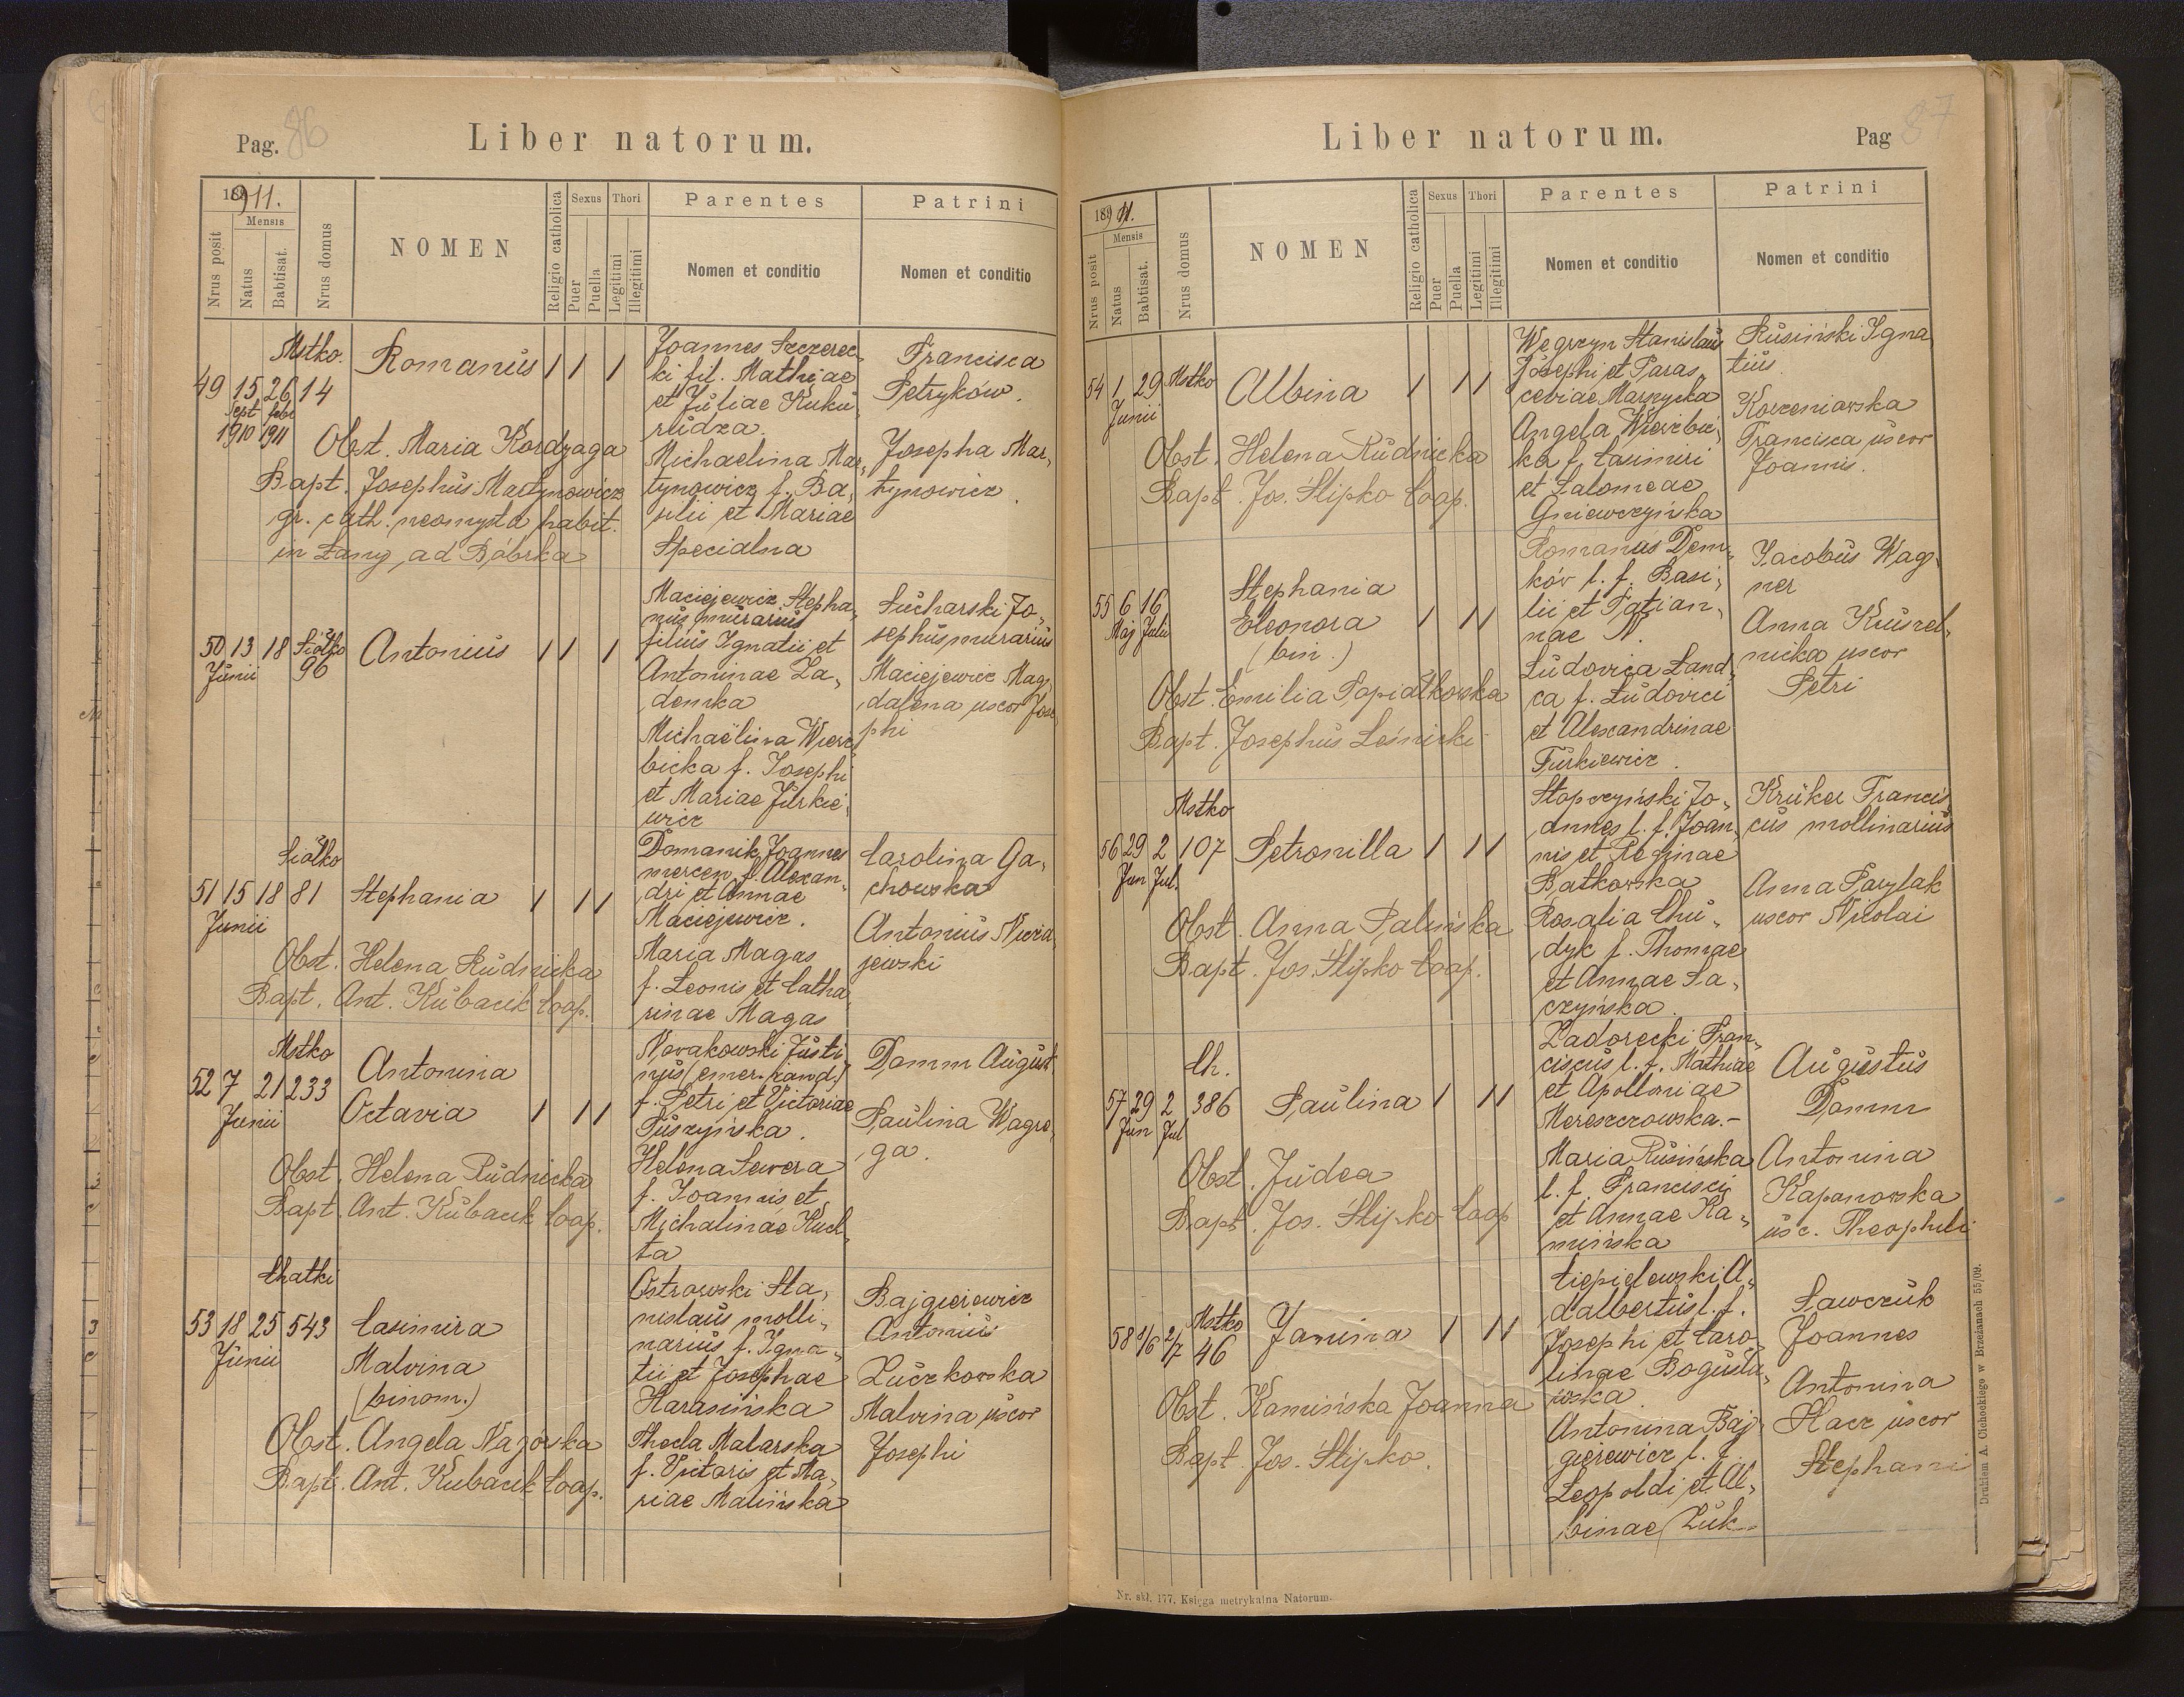 Pag. 86
Liber natorum.
1911.
Mensis
Nrus posit
Natus
Babtisat.
Nrus domus
NOMEN
Religio catholica
Sexus
Puer
Puella
Thori
Legitimi
Illegitimi
Parentes
Nomen et conditio
Patrini
Nomen et conditio
Mstko.
49 15 26 14
Sept febr
1910 1911
Romanus / / /
Obst. Maria Kordzaga
Bapt. Josephus Martynowicz
gr. cath. neomysta habit.
in Łany ad Bóbrka
Joannes Szczerec„
ki fil. Mathiae
et Juliae Kuku„
rudza.
Michaelina Mar„
tynowicz f. Ba„
silii et Mariae
Specialna
Francisca
Petryków.
Josepha Mar„
tynowicz.
50 13 18 Siółko
Junii 96
Antonius / / /
Maciejewicz Stepha„
nus murarius
filius Ignatii et
Antoninae Za„
demka
Michaëlina Wierz„
bicka f. Josephi
et Mariae Jurkie„
wicz
Sucharski Jo„
sephus murarius
Maciejewicz Mag„
dalena uxor Jose
phi
Siółko
51 15 18 81
Junii
Stephania / / /
Obst. Helena Rudnicka
Bapt. Ant. Kubacik Coop.
Domanik Joannes
mercen. f. Alexan„
dri et Annae
Maciejewicz.
Maria Magas
f. Leonis et Catha
rinae Magas
Carolina Ga„
chowska
Antonius
jewski
Mstko
52 7 21 233
Junii
Antonina
Octavia / / /
Obst. Helena Rudnicka
Bapt. Ant. Kubacik Coop.
Novakowski Justi„
nus (emer. gand.)
f. Petri et Victoriae
Puszyńska.
Helena Severa
f. Joannis et
Michalinae Kuch„
ta
Damm August
Paulina Wagre„
ga.
Chatki
53 18 25 543
Junii
Casimira
Malvina
(binom.)
Obst. Angela Nagórska
Bapt. Ant. Kubacik Coop.
Ostrowski Sta„
nislaus molli„
narius f. Igna„
tii et Josephae
Harasińska
Thecla Malarska
f. Victoris et Ma„
riae Malińska
Bajgierewicz
Antonius
Łuczkowska
Malvina uxor
Josephi
Liber natorum.
Pag 87
1911.
Mensis
Nrus posit
Natus
Babtisat.
Nrus domus
NOMEN
Religio catholica
Sexus
Puer
Puella
Thori
Legitimi
Illegitimi
Parentes
Nomen et conditio
Patrini
Nomen et conditio
54 1 29 Mstko
Junii
Albina / / /
Obst. Helena Rudnicka
Bapt. Jos. Slipko Coop.
Węgrzyn Stanislaus
Josephi et Paras„
ceviae Marszycka
Angela Wierzbic„
ka f. Casimiri
et Salomeae
Gniewczyńska
Rusiński Igna„
tius.
Korzeniowska
Francisca uxor
Joannis.
55 6 16
Maj Julii
Stephania
Eleonora / / /
(bin.)
Obst. Emilia Popiatkowska
Bapt. Josephus Leśnicki
Romanus Dem„
ków l. f. Basi„
lii et Tatian„
nae N.
Ludovica Land„
ca f. Ludovici
et Alexandrinae
Turkiewicz.
Jacobus Wag„
ner
Anna Kruszel„
nicka uxor
Petri
Mstko
56 29 2 107
Jun Jul.
Petronilla / / /
Obst. Anna Palińska
Bapt. Jos. Slipko Coop.
Stopczyński Jo„
annes l. f. Joan„
nis et Reginae
Batkowska
Rosalia Chu„
dyk f. Thomae
et Annae Sa„
czyńska.
Kruker Francis„
cus mollinarius
Anna Parylak
uxor Nicolai
Ch.
57 29 2 386
Jun Jul
Paulina / / /
Obst. Judea
Bapt. Jos. Slipko Coop
Zadorecki Fran„
ciscus l. f. Mathiae
et Apolloniae
Mereszczowska.-
Maria Rusińska
l. f. Francisci
et Annae Ka„
mińska
Augustus
Damm
Antonina
Kapanowska
usc. Theophili
58 8/6 2/7 Mstko
46
Janina / / /
Obst. Kamińska Joanna
Bapt. Jos. Slipko.
Ciepielewski A„
dalbertus l. f.
Josephi et Caro„
linae Bogusła„
wska.
Antonina Baj„
gierewicz l. f.
Leopoldi et Al„
binae Żuk
Sawczuk
Joannes
Antonina
Hacz uxor
Stephani
Drukiem A. Cichockiego w Brzeżanach 55/09.
Nr. skł. 177. Księga metrykalna Natorum.